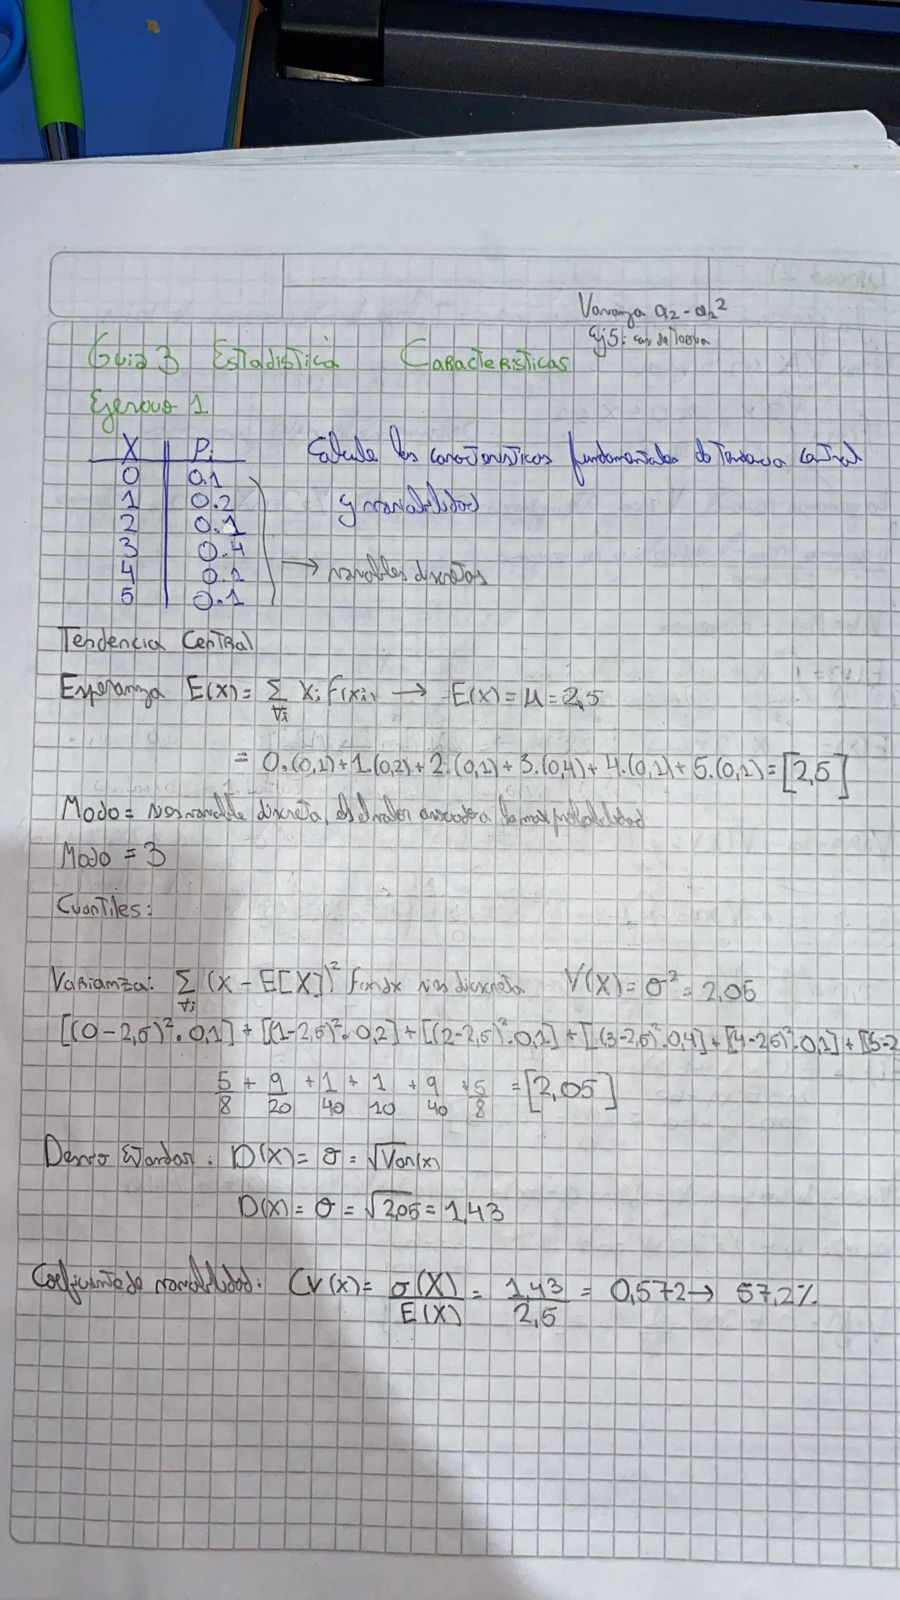 Varianza a2 - a1²
Ej5:
Guia 3 Estadistica Caracteristicas
Ejercicio 1
X Pi
0 0.1
1 0.2
2 0.1
3 0.4
4 0.1
5 0.1
Calcule las caracteristicas fundamentales de Tendencia Central
y variabilidad
→ variables discretas
Tendencia Central
Esperanza E(X) = Σ Xi f(xi) → E(X) = μ = 2,5
∀i
= 0.(0,1) + 1.(0,2) + 2.(0,1) + 3.(0,4) + 4.(0,1) + 5.(0,1) = [2,5]
Modo = variable discreta, es el valor la max probabilidad
Modo = 3
Cuantiles:
Varianza: Σ (X - E[X])² V(X) = σ² = 2,05
∀i
[(0-2,5)².0,1] + [(1-2,5)².0,2] + [(2-2,5)².0,1] + [(3-2,5)².0,4] + [4-2,5)².0,1] + [(5-2
5/8 + 9/20 + 1/40 + 1/10 + 9/40 + 5/8 = [2,05]
Desvio Estandar: D(X) = σ = √Var(x)
D(X) = σ = √2,05 = 1,43
Coeficiente de variabilidad: CV(X) = σ(X)/E(X) = 1,43/2,5 = 0,572 → 57,2%